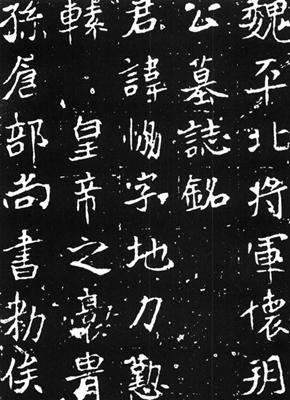 魏平北將軍懷朔
公墓誌銘
君諱協字地力懃
轅皇帝之裔胄
孫倉部尚書勑俟